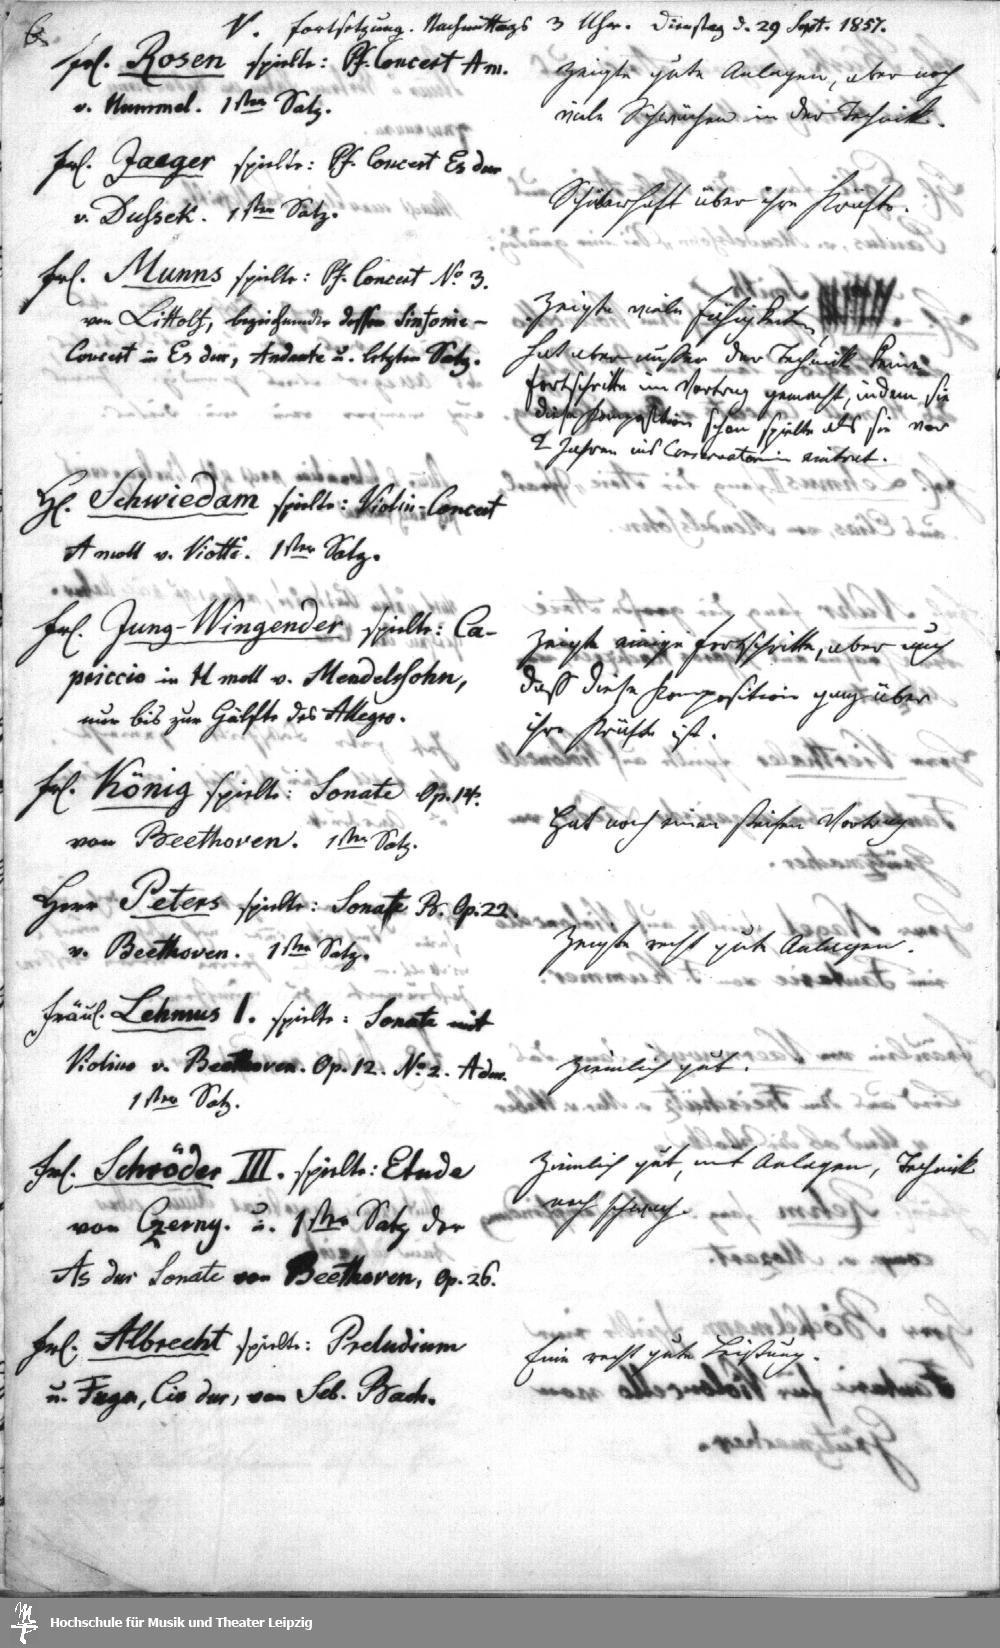 6.
V. Fortsetzung. Nachmittags 3 Uhr. Dienstag d. 29 Sept. 1857.
Frl. Rosen spielte: Pf. Concert Am.
v. Hummel. 1ster Satz.
zeigte gute Anlagen, aber noch
viele Schwächen in der Technik.
Frl. Jaeger spielte: Pf. Concert Es dur
v. Dussek. 1ster Satz.
Schülerhaft über ihre Kräfte.
Frl. Munns spielte: Pf. Concert No 3.
von Littolf, bezeichnender dessen Sinfonie-
Concert in Es dur, Andante u. letzten Satz.
Zeigte viele Fähigkeiten,
hat aber außer der Technik keine
Fortschritte im Vortrag gemacht, indem sie
diese Komposition schon spielte als sie vor
2 Jahren ins Conservatorium eintrat.
Hr. Schwiedam spielte: Violin-Concert
A moll v. Viotti. 1ster Satz.
Frl. Jung-Wingender spielte: Ca-
priccio in H moll v. Mendelssohn,
nur bis zur Hälfte des Allegro.
zeigte einige Fortschritte, aber auch
daß diese Komposition ganz über
ihre Kräfte ist.
Frl. König spielte: Sonate Op. 14.
von Beethoven. 1ster Satz.
Hat noch einen steifen Vortrag
Herr Peters spielte: Sonate B. Op. 22.
v. Beethoven. 1ster Satz.
Zeigte recht gute Anlagen.
Fräul. Lehmus I. spielte: Sonate mit
Violine v. Beethoven. Op. 12. No 2. A dur.
1ster Satz.
ziemlich gut.
Frl. Schröder III. spielte: Etude
von Czerny. u. 1ster Satz der
As dur Sonate von Beethoven, Op. 26.
Ziemlich gut, mit Anlagen, Technik
noch schwach.
Frl. Albrecht spielte: Preludium
u. Fuge, Cis dur, von Seb. Bach.
Eine recht gute Leistung.
Hochschule für Musik und Theater Leipzig